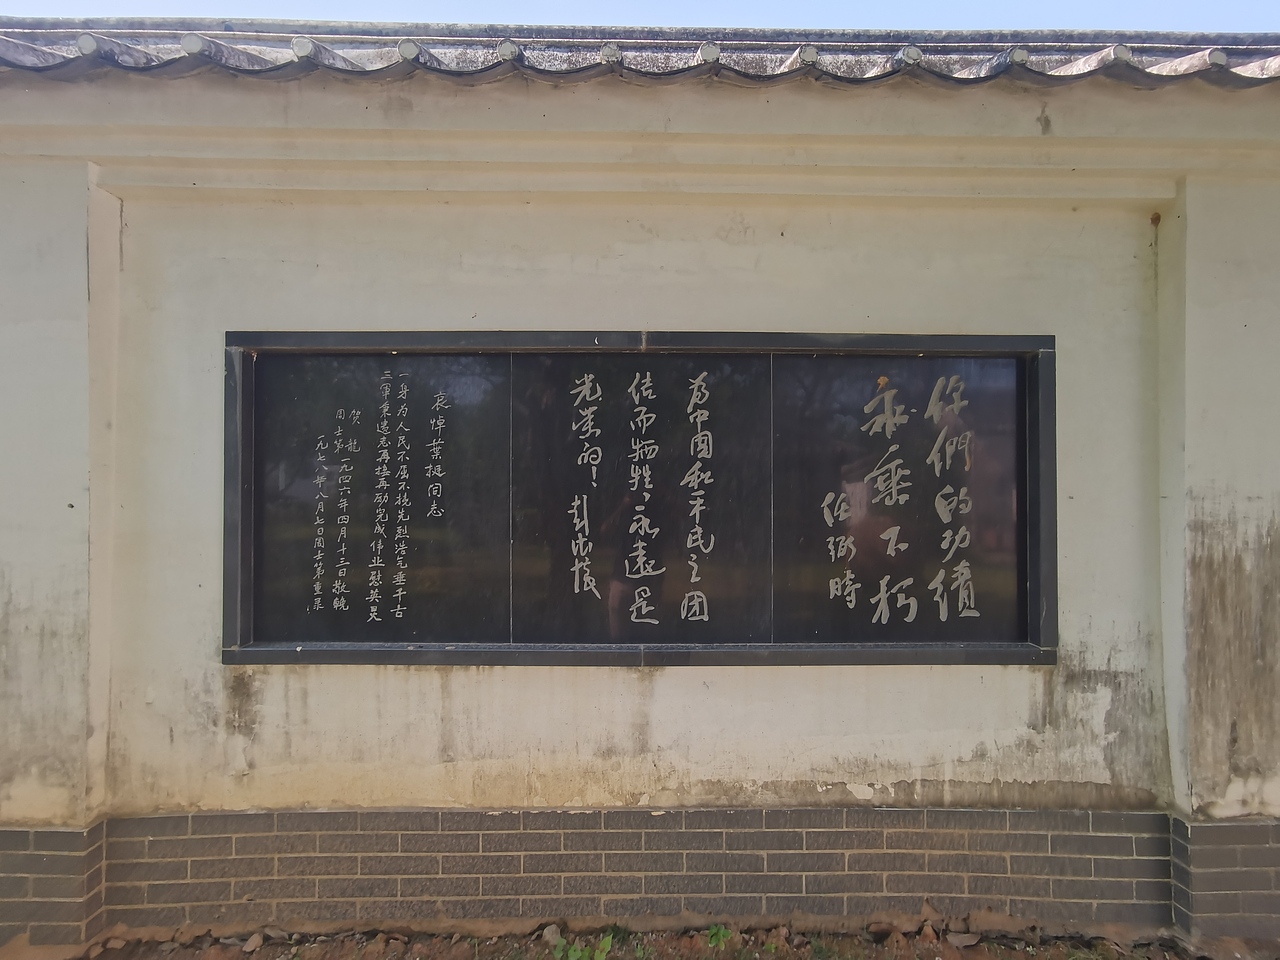 你們的功績
永垂不朽
任弼時
为中国和平民主团
结而牺牲，永遠是
光荣的！
彭德怀
哀悼葉挺同志
一身为人民不屈不挠先烈浩气垂千古
三軍秉遗志再接再励完成伟业慰英灵
贺龍一九四六年四月十三日敬輓
周士第
一九七八年八月七日周士第重录